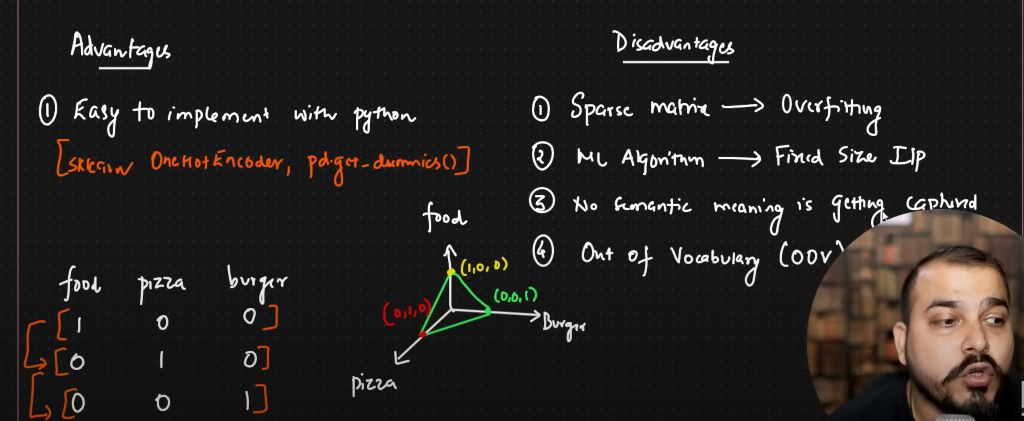 Advantages
① Easy to implement with python
[sklearn OneHotEncoder, pd.get_dummies()]
food pizza burger
[1 0 0]
[0 1 0]
[0 0 1]
food
(1,0,0)
(0,1,0)
(0,0,1)
Burger
pizza
Disadvantages
① Sparse matrix → Overfitting
② ML Algorithm → Fixed Size I/p
③ No semantic meaning is getting captured
④ Out of Vocabulary (OOV)